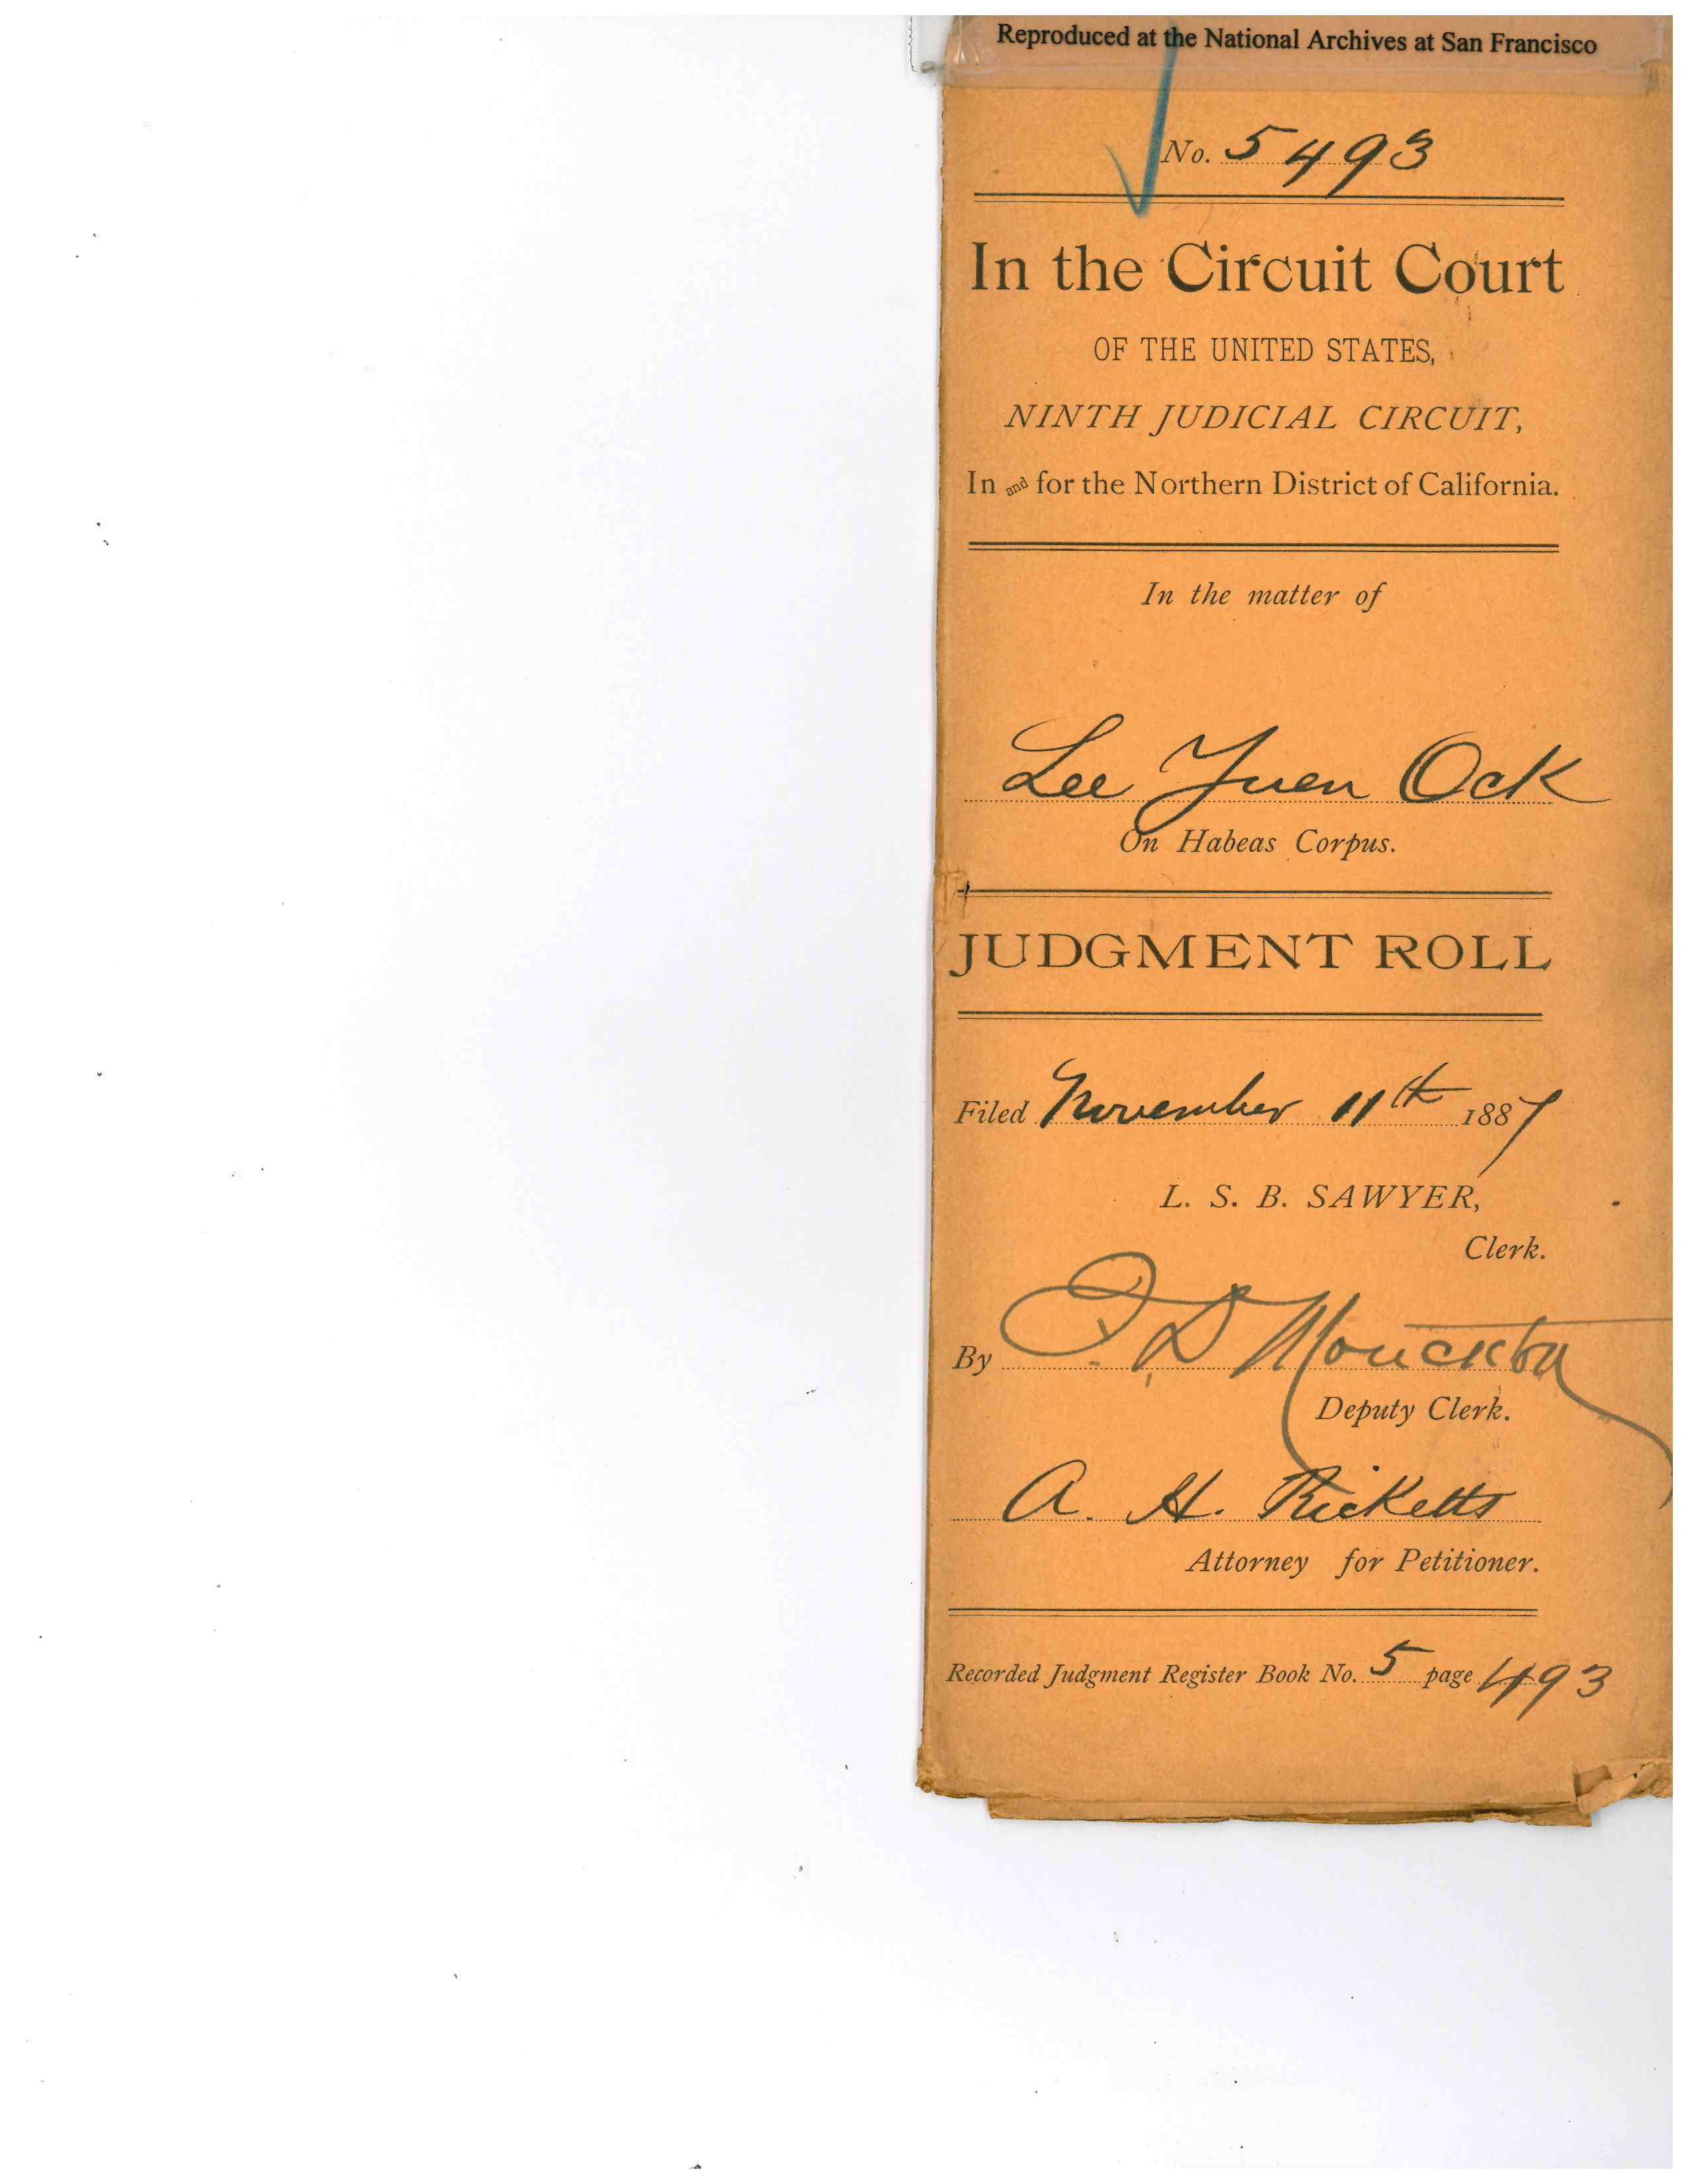 Reproduced at the National Archives at San Francisco
No. 5493
In the Circuit Court
OF THE UNITED STATES,
NINTH JUDICIAL CIRCUIT,
In and for the Northern District of California.
In the matter of
Lee Yuen Ock
On Habeas Corpus.
JUDGMENT ROLL
Filed November 11th 1887
L. S. B. SAWYER,
Clerk.
By F. D. Monckton
Deputy Clerk.
A. H. Ricketts
Attorney for Petitioner.
Recorded Judgment Register Book No. 5 page 493